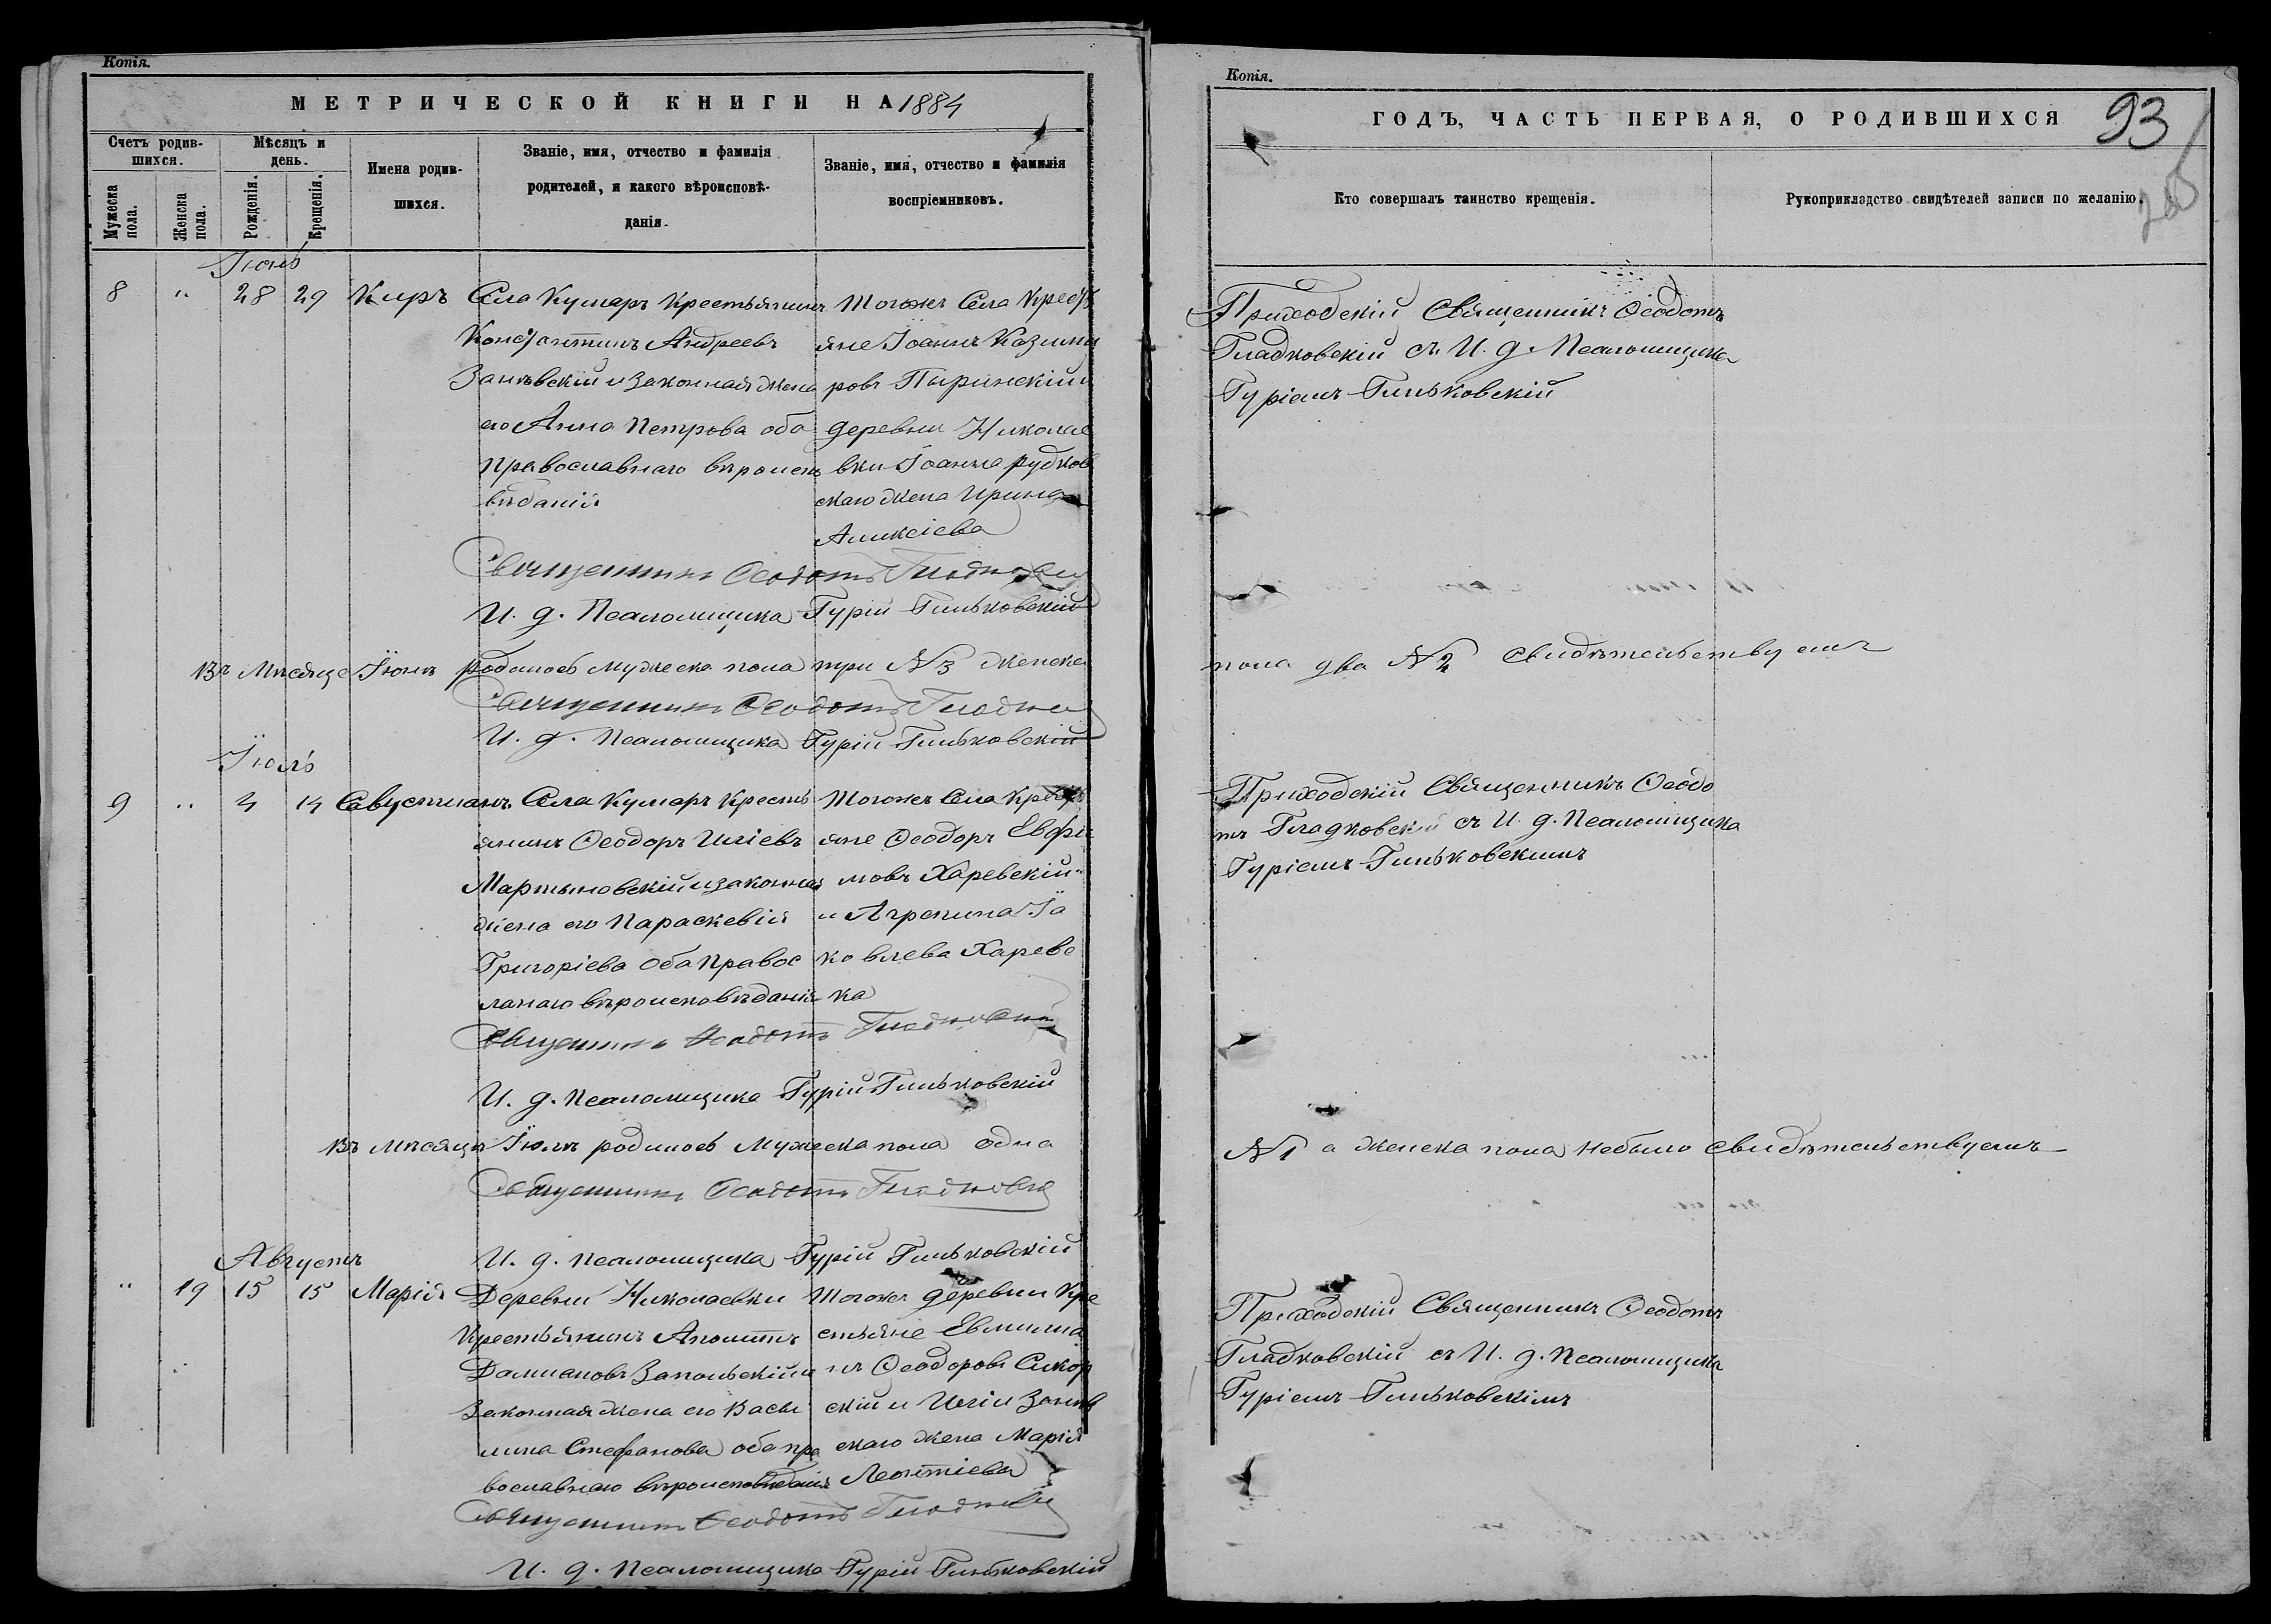 Копія.
МЕТРИЧЕСКОЙ КНИГИ НА 1884
Счетъ родив-
шихся.
Мужеска
пола.
Женска
пола.
Мѣсяцъ и
день.
Рожденія.
Крещенія.
Имена родив-
шихся.
Званіе, имя, отчество и фамилія
родителей, и какого вѣроисповѣ-
данія.
Званіе, имя, отчество и фамилія
воспріемниковъ.
Іюнь
8 „ 28 29 Киръ
Села Кумаръ Крестьянинъ
Константинъ Андреевъ
и законная жена
его Анна Петрова оба
православнаго вѣроиспо
вѣданія
Тогоже села крестъ
яне Іоаннъ Казими
ровъ Пыринскій и
деревни Николае
вки Іоанна Рудков
скаго жена Ирина
Аликсіева
Священникъ Ѳеодотъ
И. д. Псаломщика Гурій Гиньковскій
Въ Мѣсяце Іюнѣ родилось мужеска пола три №3 женска
Священникъ Ѳеодотъ
И. д. Псаломщика Гурій Гиньковскій
Іюль
9 „ 4 14 Савустианъ
Села Кумаръ крестъ
янинъ Ѳеодоръ Иліевъ
Мартыновскій и законная
жена его Параскевія
Григоріева оба правос
лавнаго вѣроисповѣданія
Тогоже села крестъ
яне Ѳеодоръ Евфи
мовъ Харевскій
и Агрепина Іа
ковлева Харевс
ка
Священникъ Ѳеодотъ Гладковскій
И. д. Псаломщика Гурій Гиньковскій
Въ мѣсяцѣ Іюлѣ родилось Мужеска пола одна
Священникъ Ѳеодотъ Гладковскій
И. д. Псаломщика Гурій Гиньковскій
Августъ
„ 19 15 15 Марія
Деревни Николаевки
Крестьянинъ Аполитъ
Даміановъ Запольскій и
Законная жена его Васи
лина Стефанова оба пра
вославнаго вѣроисповѣданія
Тогоже деревни Кре
стьяне
нъ Ѳеодоровъ Сикор
скій и Иліи
скаго жена Марія
Леонтіева
Священникъ Ѳеодотъ
И. д. Псаломщика Гурій Гиньковскій
Копія.
ГОДЪ, ЧАСТЬ ПЕРВАЯ, О РОДИВШИХСЯ
93
Кто совершалъ таинство крещенія.
Рукоприкладство свидѣтелей записи по желанію.
Приходскій Священникъ Ѳеодотъ
Гладковскій съ И. д. Псаломщика
Гуріемъ Гиньковскій
пола два №2 свидѣтельствуемъ
Приходскій Священникъ Ѳеодо
тъ Гладковскій съ И. д. Псаломщика
Гуріемъ Гиньковскимъ
№1 а женска пола небыло свидѣтельствуемъ
Приходскій Священникъ Ѳеодотъ
Гладковскій съ И. д. Псаломщика
Гуріемъ Гиньковскімъ